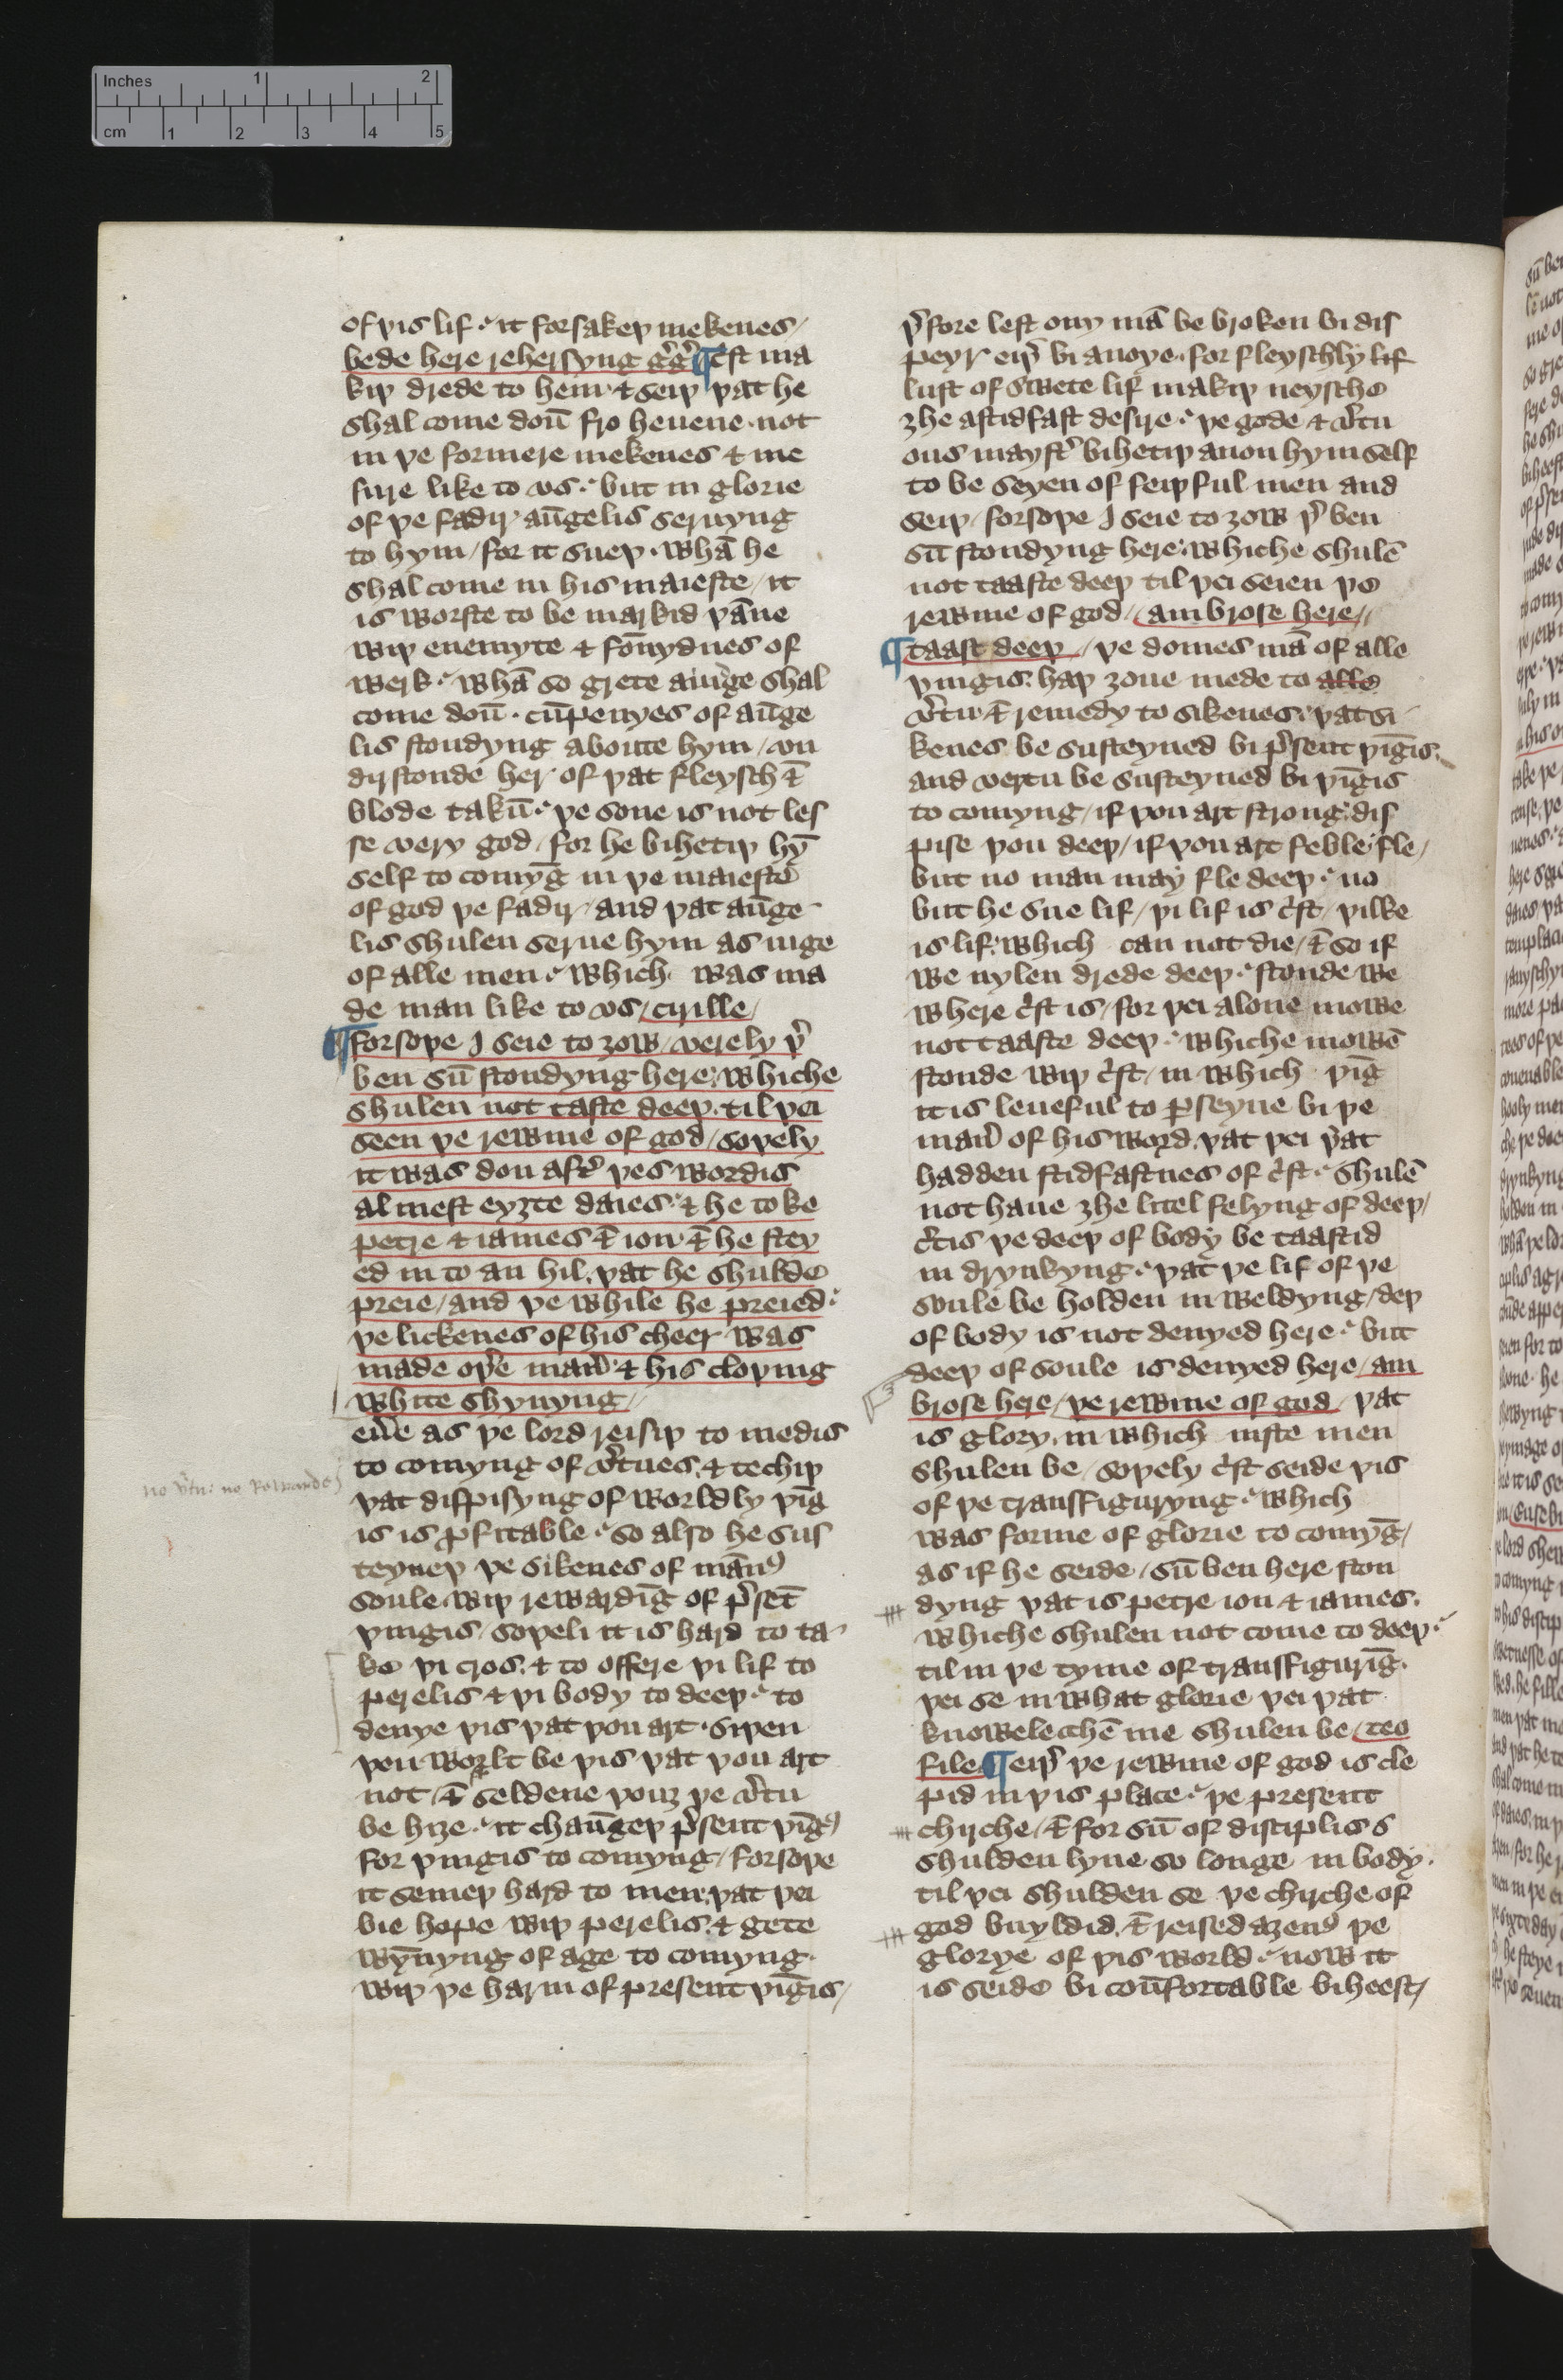 Inches 1 2
cm 1 2 3 4 5
of þis lif · it forsakeþ mekenes /
bede here rehersyng gͬgͬ ¶ c̃st ma
kiþ drede to hem · ⁊ seiþ þat he
shal come doũ fro heuene · not
in þe formere mekenes ⁊ me
sure like to vs · but in glorie
of þe fadir · aũgelis seruyng
to hym / for it sueþ · whã he
shal come in his maieste / it
is worste to be markid þãne
wiþ enemyte ⁊ foũydnes of
werk · whã so grete a iuge shal
come doũ · cũpenyes of aũge
lis stondyng aboute hym / vn
dirstonde her of þat fleysch ⁊
blode takũ · þe sone is not les
se very god / for he bihetiþ hỹ
self to comyg̃ in þe maieste
of god þe fadir / and þat aũge
lis shulen serue hym as iuge
of alle men · which was ma
de man like to vs / cirille /
¶ forsoþe I seie to ȝow / verely þͬ
ben sũ stondyng here · whiche
shulen not taste deeþ · til þei
seen þe rewme of god / soþely
it was don aftͬ þes wordis
almest eyȝte daies · ⁊ he toke
petre ⁊ iames ⁊ ion · ⁊ he stey
ed in to an hil · þat he shulde
preie / and þe while he preied ·
þe lickenes of his cheer was
made oþͬe manͬ · ⁊ his cloþing
white shynyng /
euͬe as þe lord reisiþ to medis
to comyng of vͬtues · ⁊ techiþ
no vͬtu: no Rewarde
þat dispisyng of worldly þĩg
is is ꝓfitable · so also he sus
teyneþ þe sikenes of mãnꝰ
soule wiþ rewardĩg of pͬset̃
þingis / soþeli it is hard to ta
ke þi cros · ⁊ to offere þi lif to
perelis ⁊ þi body to deeþ · to
denye þis þat þou art · siþen
þou wolt be þis þat þou art
not / ⁊ seldene þouȝ þe vͬtu
be hiȝe · it chaũgeþ pͬsent þĩgꝭ
for þingis to comyng / forsoþe
it semeþ hard to men · þat þei
bie hope wiþ perelis · ⁊ gete
wỹnyng of age to comyng ·
wiþ þe harm of present þĩgis /
þͬfore lest ony mã be broken bi dis
peyr eiþͬ bi anoye · for fleyschly lif
lust of swete lif makiþ neysche
ȝhe a stidfast desire · þe gode ⁊ vͬtu
ous maystͬ bihetiþ anon hymself
to be seyen of feiþful men and
seiþ / forsoþe I seie to ȝow þͬ ben
sũ stondyng here · whiche shulẽ
not taaste deeþ til þei seien þe
rewme of god / ambrose here //
¶ taast deeþ / þe domes mã of alle
þingis · haþ ȝoue mede to alle
vͬtu · ⁊ remedy to sikenes · þat si
kenes be susteyned bi pͬsent þĩgis ·
and vertu be susteyned bi þĩgis
to comyng / if þou art strong · dis
pise þou deeþ / if þou art feble · fle /
but no man may fle deeþ · no
but he sue lif / þi lif is c̃st / þilke
is lif · which can not die / ⁊ so if
we nylen drede deeþ · stonde we
where c̃st is / for þei alone mowe
not taaste deeþ · whiche mowẽ
stonde wiþ c̃st / in which þĩg
it is leueful to ꝑseyue bi þe
manͬ of his word · þat þei þat
hadden stidfastnes of c̃st · shulẽ
not haue ȝhe litel felyng of deeþ /
c̃tis þe deeþ of body be taastid
in drynkyng · þat þe lif of þe
soule be holden in weldyng / deþ
of body is not denyed here · but
deeþ of soule is denyed here / am
brose here / þe rewme of god / þat
is glory · in which iuste men
shulen be / soþely c̃st seide þis
of þe transfiguryng · which
was forme of glorie to comyg̃ /
as if he seide / sũ ben here ston
dyng þat is petre ion ⁊ iames ·
whiche shulen not come to deeþ ·
til in þe tyme of transfigurĩg ·
þei se in what glorie þei þat
knowelechẽ me shulen be / teo
file ¶ eiþͬ þe rewme of god is cle
pid in þis place · þe present
chirche / ⁊ for sũ of disciplis
shulden lyue so longe in body ·
til þei shulden se þe chirche of
god buyldid · ⁊ reised aȝenꝰ þe
glorye of þis world · now it
is seide bi coũfortable biheest /